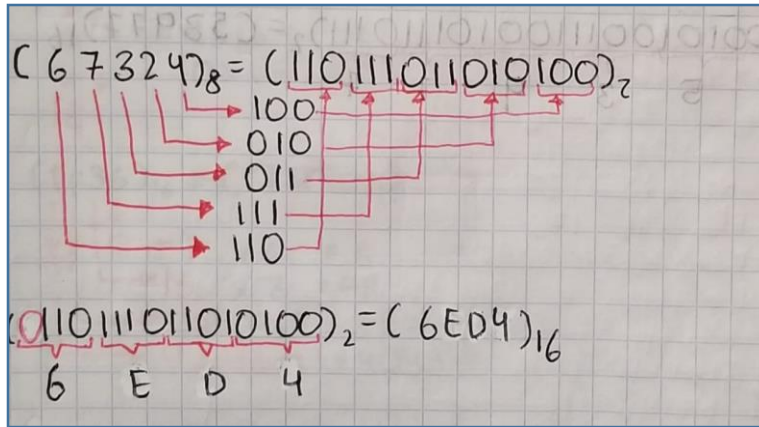 (67324)₈=(110111011010100)₂
100
010
011
111
110
(0110111011010100)₂=(6ED4)₁₆
6 E D 4